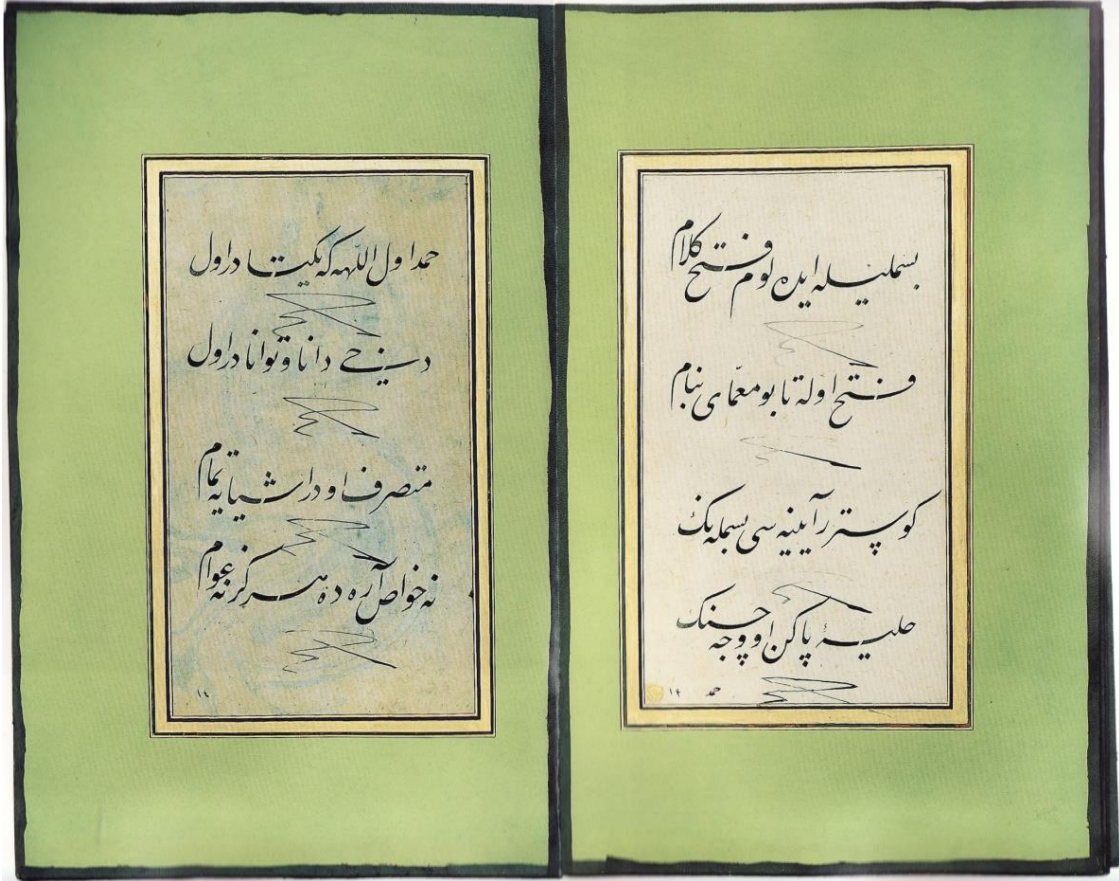 بسمليله ايده لوم فتح كلام
فتح اوله تا بو معماى بنام
كوسترر آيينه سى بسمله نك
حليهٔ پاكن او وجه حسنك
حمد
حمد اول اللهه كه يكتا در اول
دانا و توانا در اول
متصرف او در اشيايه تمام
نه خواص آره ده هركز نه عوام